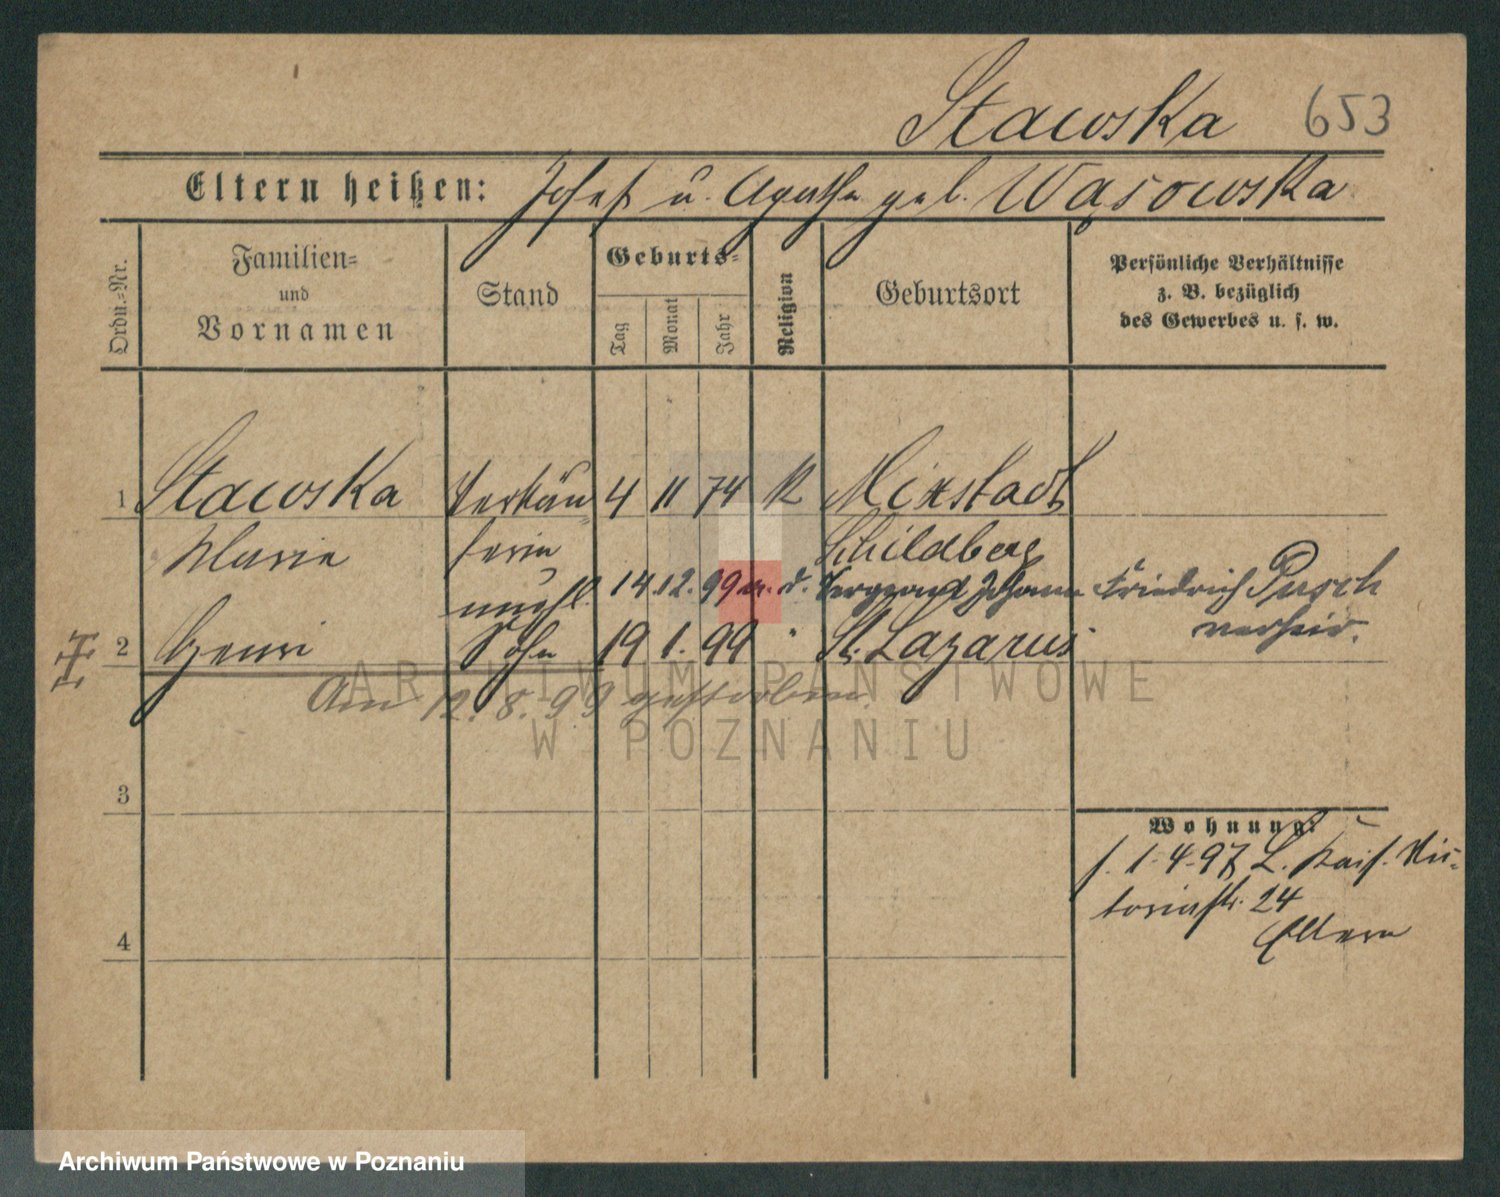 Stawska 653
Eltern heißen: Josef u. Agatha geb. Wąsowska
Ordn.=Nr.
Familien=
und
Vornamen
Stand
Geburts=
Tag
Monat
Jahr
Religion
Geburtsort
Persönliche Verhältnisse
z. B. bezüglich
des Gewerbes u. s. w.
1 Stawska Verkäu= 4 11 74 K Mixstadt
Marie ferin Schildberg
unehl. 14.12.99 m. d. Sergeant Johann Friedrich Pusch
verheir.
2 Henri Sohn 19 1. 99 " St. Lazarus
Am 12.8.99 gestorben.
3
4
Wohnung:
s. 1.4.97 L. Kais. Vic=
toriastr. 24
Eltern
ARCHIWUM PAŃSTWOWE
W POZNANIU
Archiwum Państwowe w Poznaniu